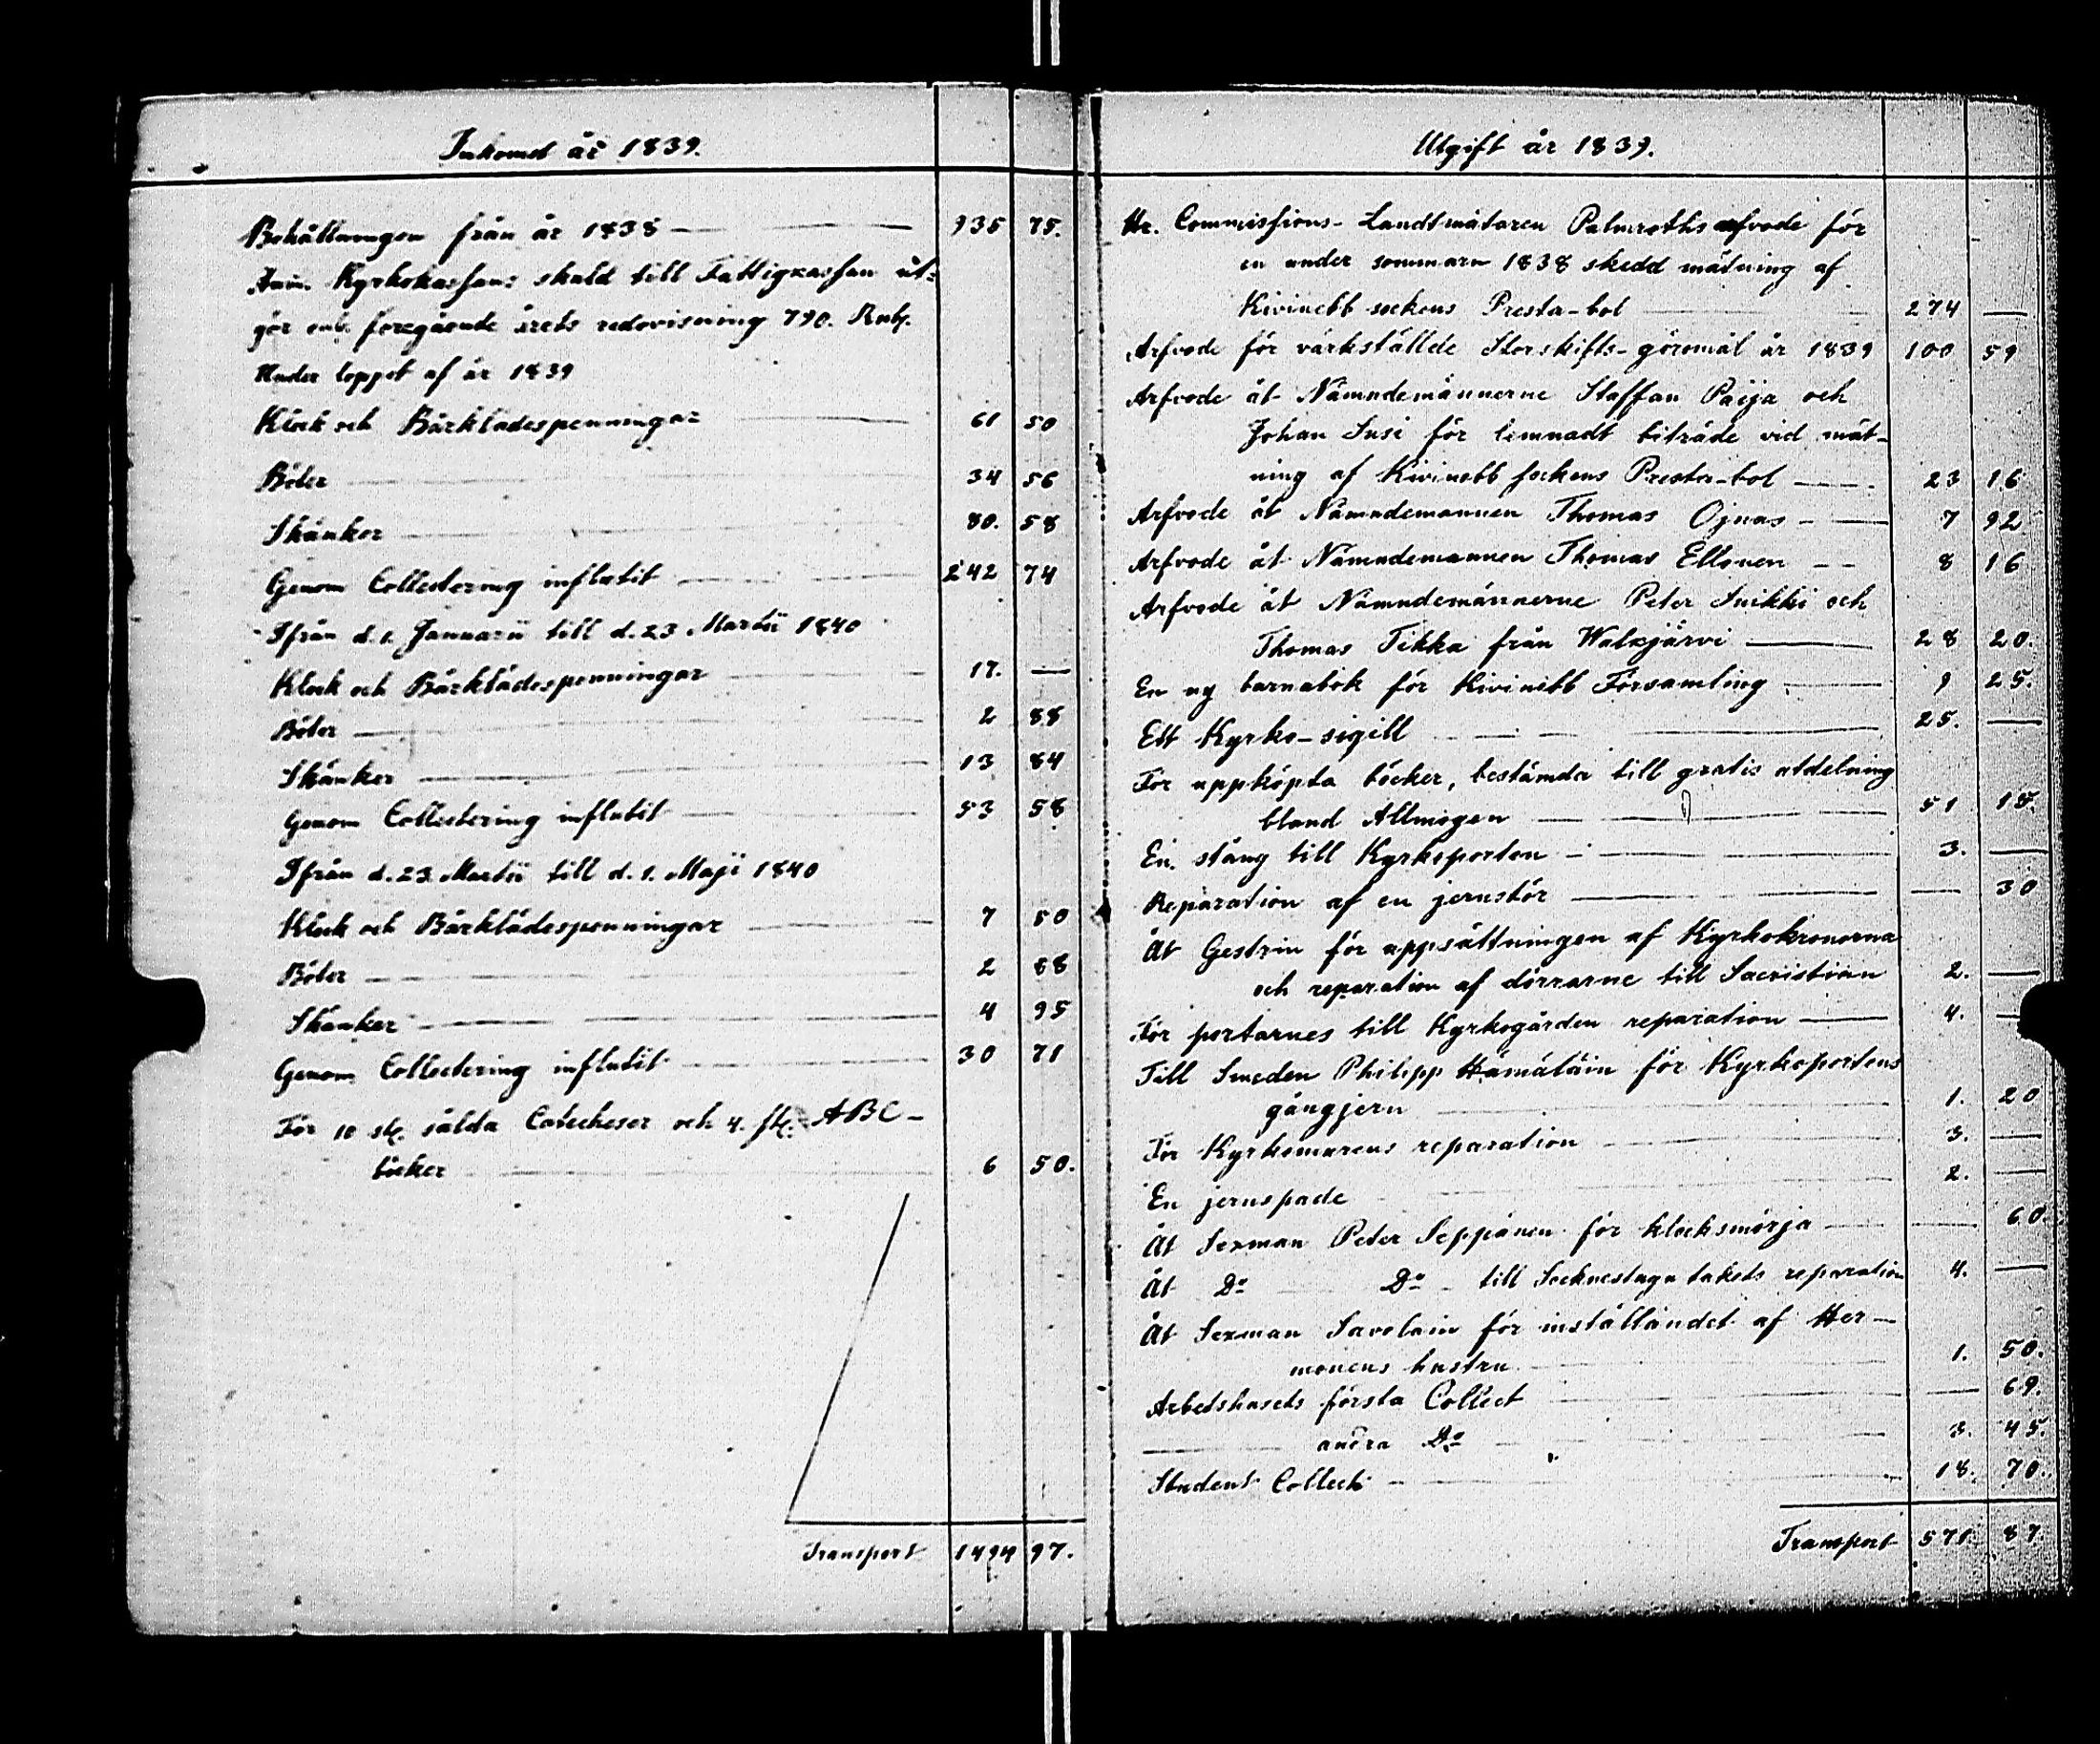 Inkomst år 1839.
Behållningen från år 1838 — 935 75.
Anm. Kyrkokassans skuld till Fattigkassan ut-
gör enl. foregående årets redovisning 790. Rub.
Under loppet af år 1839
Klock och Bårklädespenningar — 61 50
Böter — 34 56
Skänker — 80. 58
Genom Collectering influtit — 242 74
Ifrån d. 1. Januarii till d. 23 Martii 1840
Klock och Bårklädespenningar — 17. —
Böter — 2 88
Skänker — 13 84
Genom Collectering influtit — 53 58
Ifrån d. 23 Martii till d. 1. Maji 1840
Klock och Bårklädespenningar — 7 50
Böter — 2 88
Skänker — 4 95
Genom Collectering influtit — 30 71
För 10 st. sålda Catecheser och 4. st. ABC-
böcker — 6 50.
Transport 1494 97.
Utgift år 1839.
Hr. Commissions-Landtmätaren Palmroths arfvode för
en under sommarn 1838 skedd mätning af
Kivinebb sockens Presta-bol — 274 —
Arfvode för värkstälde Storskifts-göromål år 1839 100 59
Arfvode åt Nämndemännerne Staffan Päijä och
Johan Susi för lemnadt biträde vid mät-
ning af Kivinebb sockens Presta-bol — 23 16
Arfvode åt Nämndemannen Thomas Ojnas — 7 92
Arfvode åt Nämndemannen Thomas Ellonen — 8 16
Arfvode åt Nämndemännerne Peter Suikki och
Thomas Tikka från Walkjärvi — 28 20.
En ny barnabok för Kivinebb Församling — 9 25.
Ett Kyrko-sigill — 25. —
För uppköpta böcker, bestämda till gratis utdelning
bland Allmogen — 51 15.
En stång till Kyrkoporten — 3. —
Reparation af en jernstör — — 30
Åt Gestrin för uppsättningen af Kyrkokronorna
och reparation af dörrarne till Sacristian 2. —
För portarnes till Kyrkogården reparation — 4. —
Till Smeden Philipp Hämäläin för Kyrkoportens
gångjern — 1. 20
För Kyrkomurens reparation — 3. —
En jernspade — 2. —
Åt Sexman Peter Seppänen för klocksmörja — — 60.
Åt Do — Do till Sockenstugu takets reparation 4. —
Åt Sexman Savolain för inställandet af Her-
monens hustru — 1. 50.
Arbetshusets första Collect — — 69.
— andra Do — 3. 45.
Student Collect — 18. 70.
Transport 571. 87.